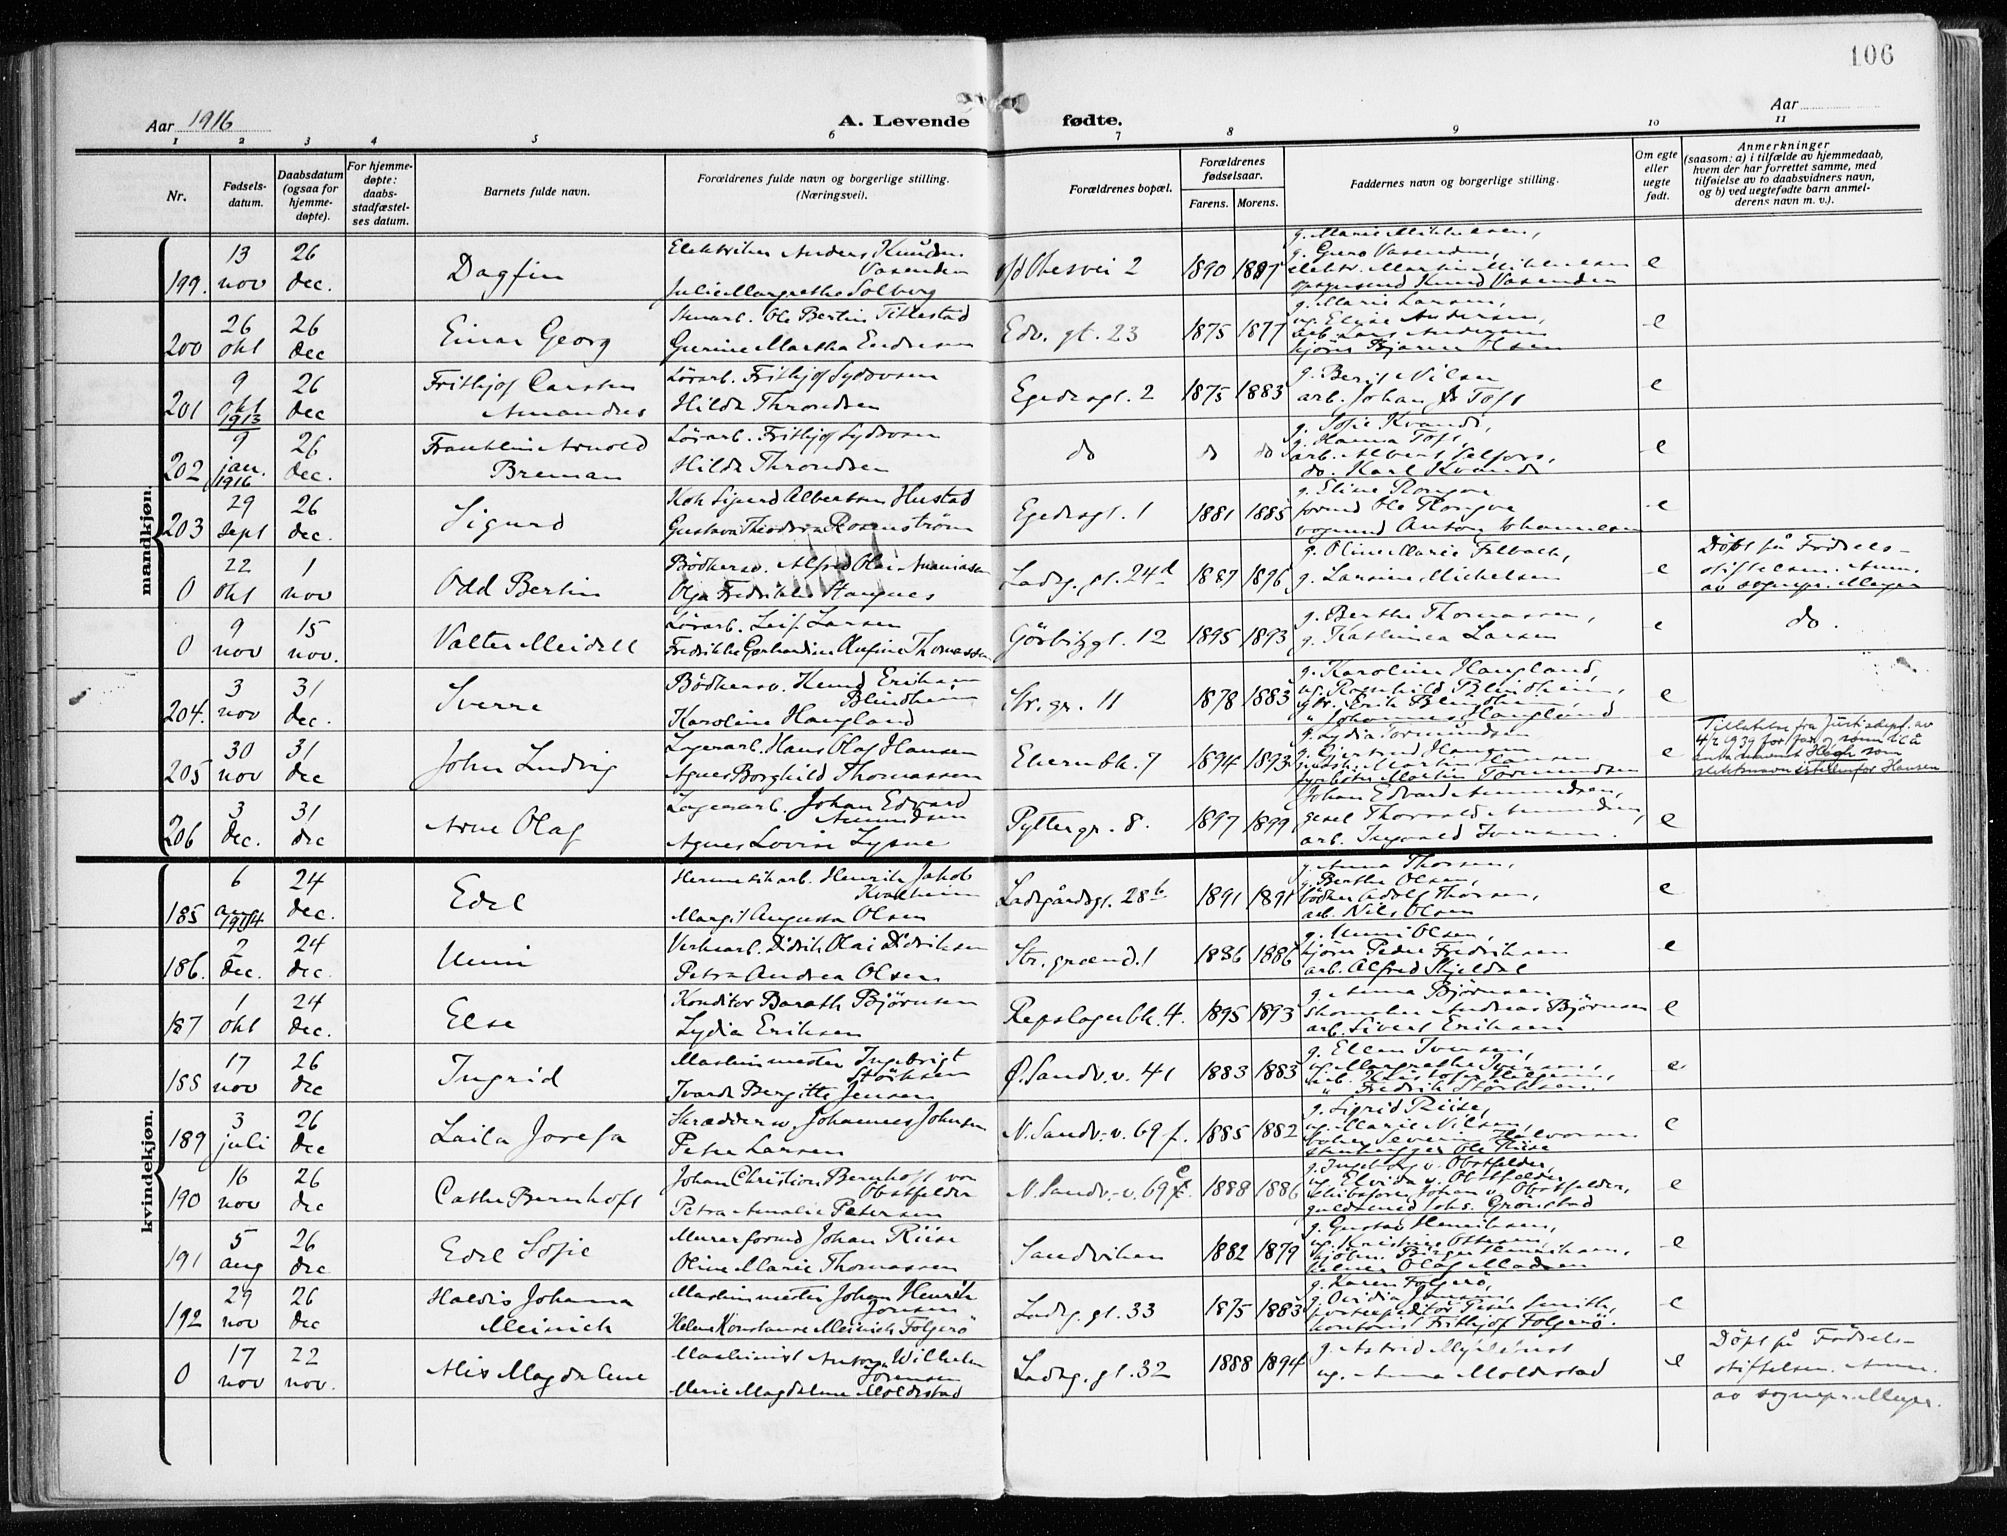 106
Aar 1916
A. Levende fødte.
Aar
1 2 3 4 5 6 7 8 9 10 11
Nr.
Fødsels-
datum.
Daabsdatum
(ogsaa for
hjemme-
døpte).
For hjemme-
døpte:
daabs-
stadfæstel-
ses datum.
Barnets fulde navn.
Forældrenes fulde navn og borgerlige stilling.
(Næringsvei).
Forældrenes bopæl.
Forældrenes
fødselsaar.
Farens. Morens.
Faddernes navn og borgerlige stilling.
Om egte
eller
uegte
født.
Anmerkninger
(saasom: a) i tilfælde av hjemmedaab,
hvem der har forrettet samme, med
tilføielse av to daabsvidners navn,
og b) ved uegtefødte barn anmel-
derens navn m. v.).
mandkjøn.
199. 13 nov 26 dec. Dagfin
Elektriker Anders Knudsen
Vasenden
Julie Margrethe Solberg
2 1890 1887
g. Marie Mikkelsen,
g. Guro Vasenden,
elektr. Martin Mikkelsen
Knud Vasenden
e
200 26 okt 26 dec Einar Georg
Ole Bertin Titlestad
Gurine Martha Endresen
Edv. gt. 23 1875 1877
g. Marie Larsen,
ug. Elise Andersen,
arb. Lars Andersen
kjører Bjarne Olsen
e
201 9 okt 1913 26 dec Frithjof Carsten
Amandus
Lörarb. Frithjof Sydövsen
Hilda Throndsen
Egedesgt. 2 1875 1883
g. Berit Nilsen
arb. Johan Toft
e
202 9 jan. 1916 26 dec. Franklin Arnold
Breman
Lörarb. Frithjof Sydövsen
Hilda Throndsen
do do do
g. Sofie Kvande,
g. Hanna Toft,
arb. Albert
do. Karl Kvande
e
203 29 sept 26 dec. Sigurd
Kok Sigurd Albertsen Hustad
Gustava Theodora Rosenström
Egedesgt. 1 1881 1885
g. Eline Rongve
formd Ole Rongve
vognmd Anton Johannesen
e
0 22 okt 1 nov Odd Bertin
Bödkersv. Alfred Olai Ananiassen
Olga Fredrikke Stangnes
Ladeg. gt. 24d 1887 1896
g. Oline Marie Felbach,
g. Larsine Michelsen
e
Döpt på Födsels-
stiftelsen. Anm.
av sognepr. Meyer
0 9 nov 15 nov. Valter Meidell
Lörarb. Leif Larsen
Fredrikke Gerhardine Olufine Thomassen
Görbitzgt. 12 1895 1893
g. Berthe Thomassen,
g. Kathinca Larsen
e do.
204. 3 nov 31 dec. Sverre
Bödkersv. Knud Eriksen
Blindheim
Karoline Haugland
Str. gr. 11 1878 1883
g. Karoline Haugland,
ug. Ragnhild Blindheim,
gbr. Erik Blindheim,
" Johannes Haugland
e
205 30 nov 31 dec John Ludvig
Lagerarb. Hans Olaf Hansen
Agnes Borghild Thomassen
7 1894 1893
g. Lydia Tormundsen
g. Gjertrud Hansen
Martin Hansen
Martin Tormundsen
e
Tillatelse fra Justisdept. av
4/2 1939 for far og sønn til å
anta navnet Høgh som
slektsnavn istedenfor Hansen
206 3 dec. 31 dec Arne Olaf
Lagerarb. Johan Edvard
Amundsen
Agnes Lovise Lysne
Pyttergr. 8. 1897 1899
Johan Edvard Amundsen,
Thorvald Amundsen,
arb. Ingvald Iversen.
e
kvindekjøn.
185 6 1914 24 dec. Edel
Hermetikarb. Henrik Jakob
Kvalheim
Margit Augusta Olsen
Ladegårdsgt. 28b 1891 1891
g. Anna Thorsen,
g. Berthe Olsen,
bödker Adolf Thorsen,
arb. Nils Olsen
e
186. 2 dec. 24 dec. Unni
Verksarb. Didrik Olai Didriksen
Petra Andrea Olsen
Str. grænd. 1 1886 1886
g. Unni Olsen,
kjörer Peder Fredriksen
arb. Alfred Skjeldal
e
187 1 okt 24 dec. Else
Konditor Barath Björnsen
Lydia Eriksen
Repslagerbk. 4. 1895 1893
g. Anna Björnsen
Skomaker Andreas Björnsen
arb. Sivert Eriksen
e
188 17 nov 26 dec Ingrid
Maskinmester Ingebrigt
Störksen
Tvarda Bergitte Jensen
Ø. Sandv. v. 41 1883 1883
g. Ellen Iversen,
ug. Margrethe Iversen,
" Fredrik Störksen.
e
189 3 juli 26 dec Laila Josefa
Skrædderm. Johannes Johnsen
Petra Larsen
N. Sandv.-v. 69 f. 1885 1882
g. Sigrid Riise,
ug. Marie Nilsen,
Severin Halvorsen
stenhugger Ole Riise
e
190 16 nov 26 dec Cathe Bernhoft
Johan Christian Bernhoft von
Obstfelder
Petra Amalie Petersen
N. Sandv.-v. 69 e 1888 1886
g. Ingeborg v. Obstfelder,
g. Elvida v. Obstfelder,
skibsförer Johan v. Obstfelder,
guldsmed Johs. Grönstad
e
191 5 aug 26 dec Edel Sofie
Murerformd Johan Riise
Oline Marie Thomassen
Sandviken 1882 1879
g. Gustav Henriksen,
ug. Kristine Ottesen,
Birger Henriksen,
kelner Olaf Madsen
e
192 29 nov 26 dec Haldis Johanna
Meinich
Maskinmester Johan Henrik
Jonsen
Helene Konstanse Meinich Folgerö
Ladeg. gt. 33 1875 1883
g. Karen Folgerö,
g. Ovidia Jonsen,
postexpeditör Peter Smith,
kontorist Frithjof Folgerö.
e
0 17 nov 22 nov. Alis Magdalene
Maskinist Anton Wilhelm
Sörensen
Marie Magdalene Moldestad
Ladeg. gt. 32 1888 1894
g. Astrid Myklebust
ug. Anna Moldestad
e
Döpt på Födsels-
stiftelsen. Anm.
av sognepr. Meyer.